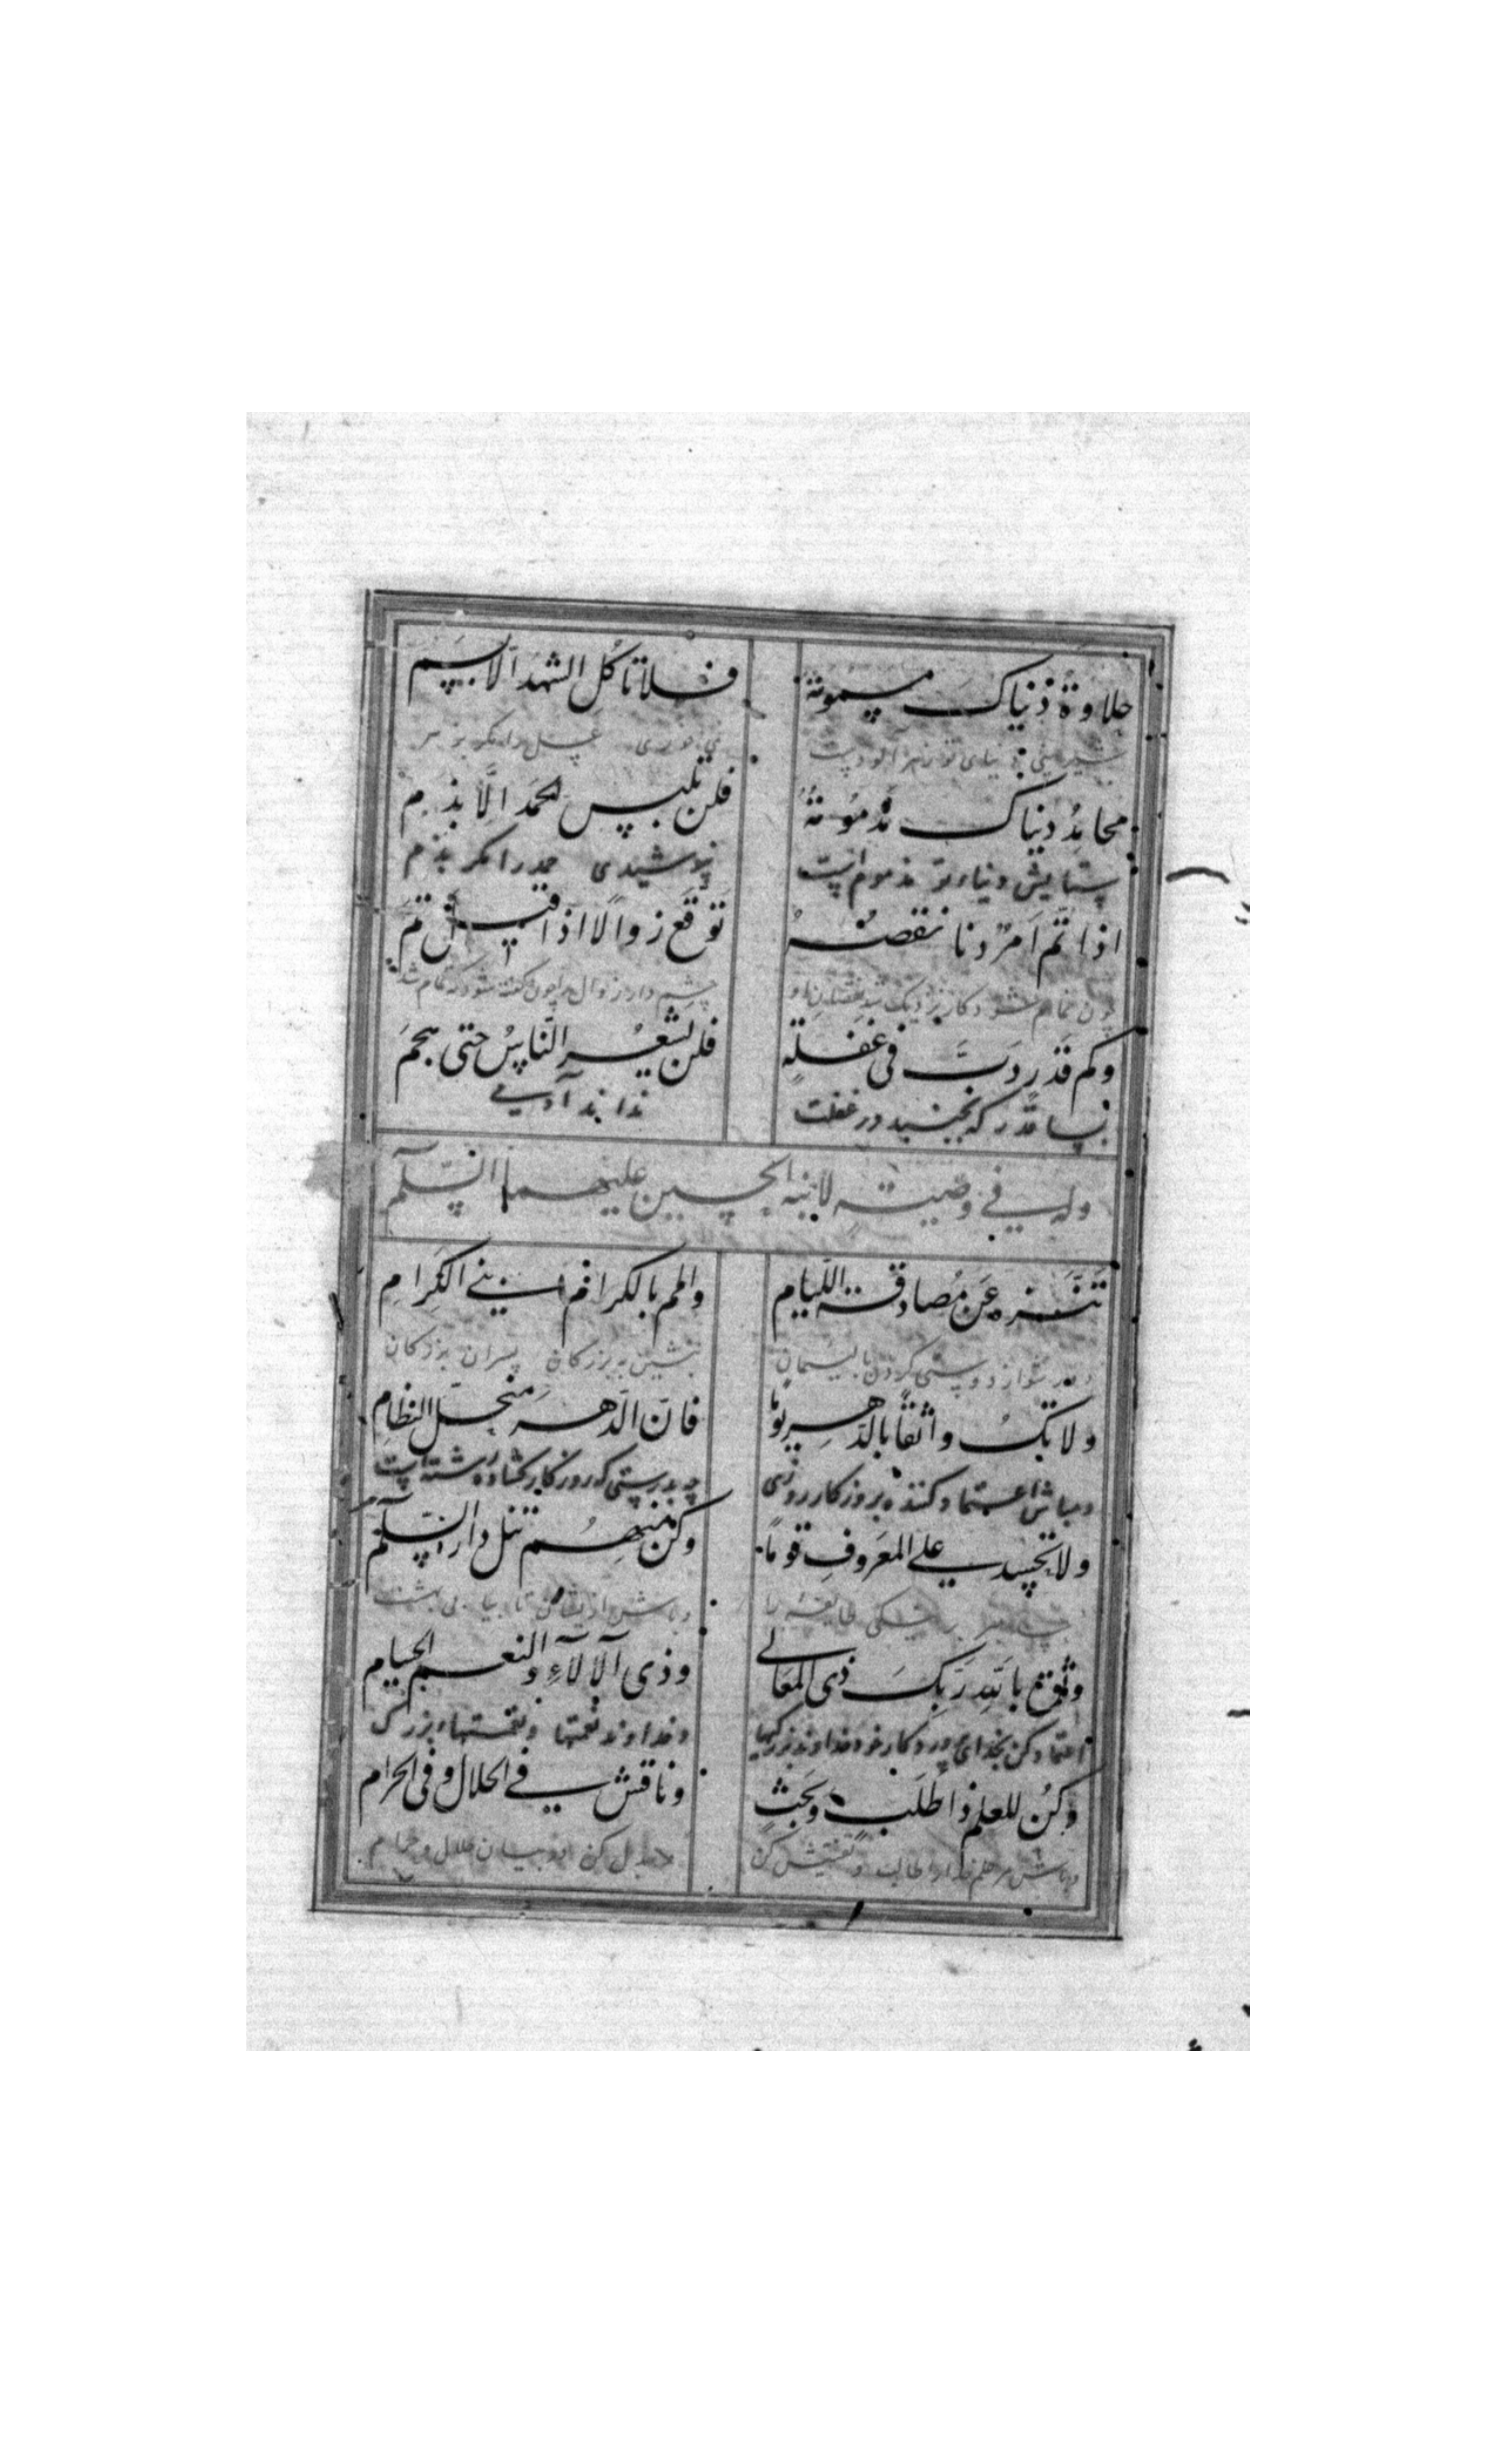 حلاوة دنياك مسمومة فلا تأكل الشهد الا بسم
شیرینی دنیای تو زهر آلودست عسل را مگر بزهر
محامد دنياك مذمومة فلن تلبس الحمد الا بذم
ستایش دنیاء تو مذموم است نپوشیدی حمد را مگر بذم
اذا تم امر دنا نقصه توقع زوالا اذا قيل تم
چون تمام شود کار نزدیک شد نقصان او چشم دار زوال را چون گفته شود که تمام شد
وكم قدر دب في غفلة فلن يشعر الناس حتى هجم
بسا قدر که بجنبید در غفلت نداند آدمی
وله في وصيته لابنه الحسين عليهما السلم
تنزه عن مصادقة اللئام والمم بالكرام بني الكرام
دور شو از دوستی کردن با لئیمان بنشین به بزرگان پسران بزرگان
ولا تك واثقا بالدهر يوما فان الدهر منحل النظام
ومباش اعتماد کننده بروزگار روزی چه بدرستی که روزگار گشاده رشته است
ولا تحسد على المعروف قوما وكن منهم تنل دار السلم
حسد مبر بر نیکی طایفه را وباش از ایشان تا بیابی بهشت
وثق بالله ربك ذى المعالي وذى الآلاء والنعم الجسام
اعتماد کن بخدای پروردکار خود خداوند بزرگیها وخداوند نعمتها ونعمتهاء بزرگ
وكن للعلم ذا طلب وبحث وناقش في الحلال وفى الحرام
وباش مر علم را طالب و تفتیش کن وجدل کن در بیان حلال و حرام